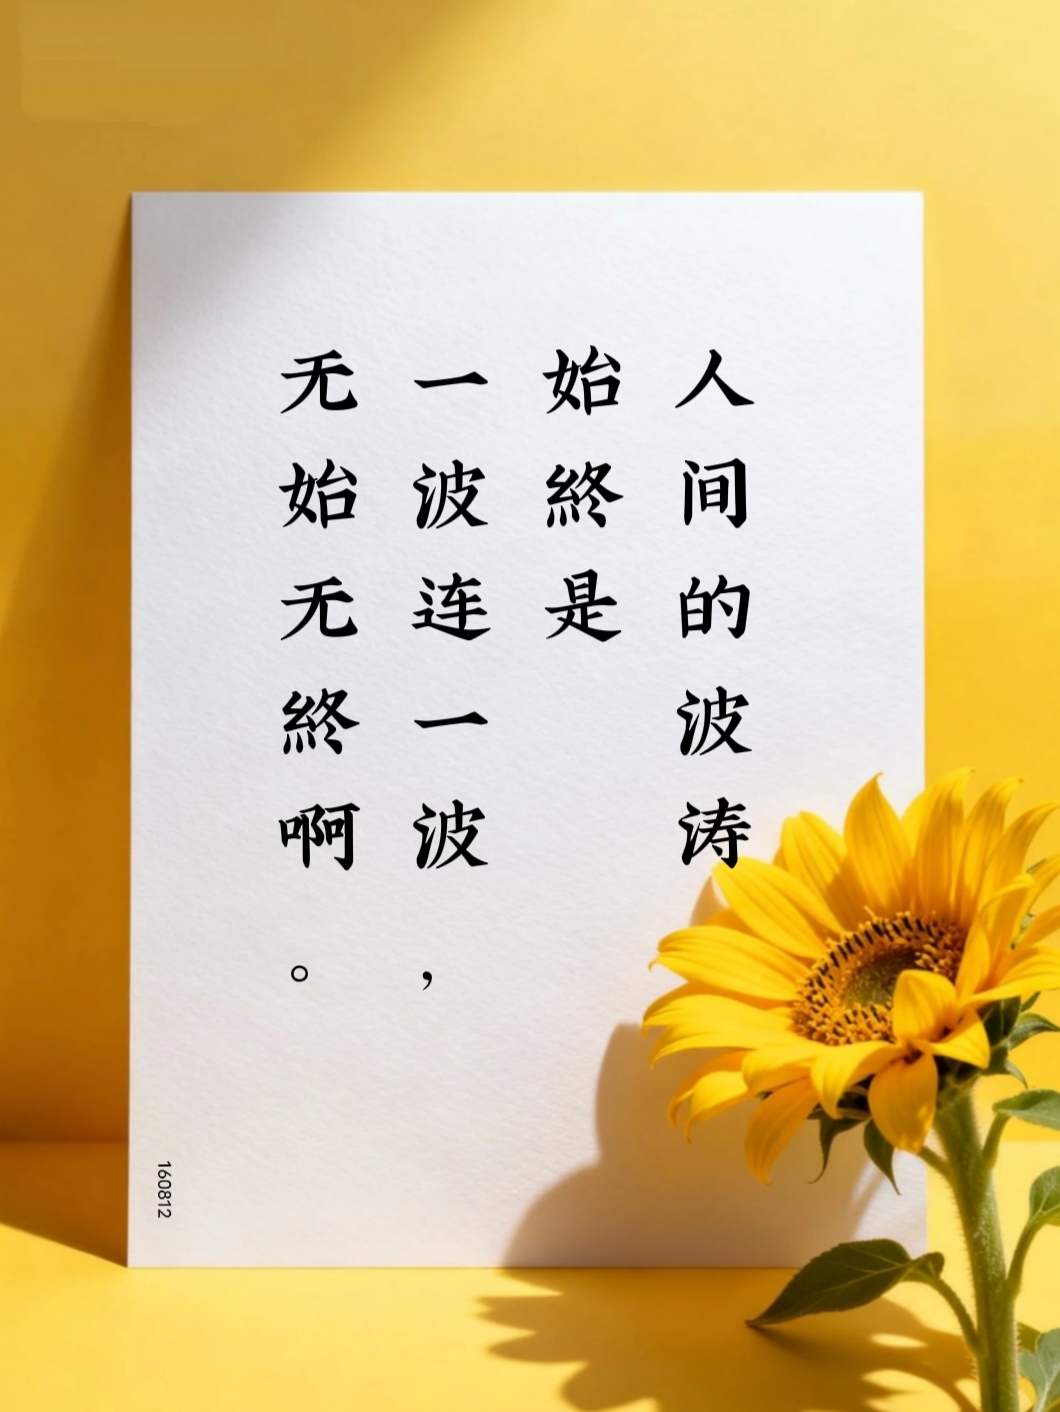 人间的波涛
始終是
一波连一波，
无始无終啊。
160812